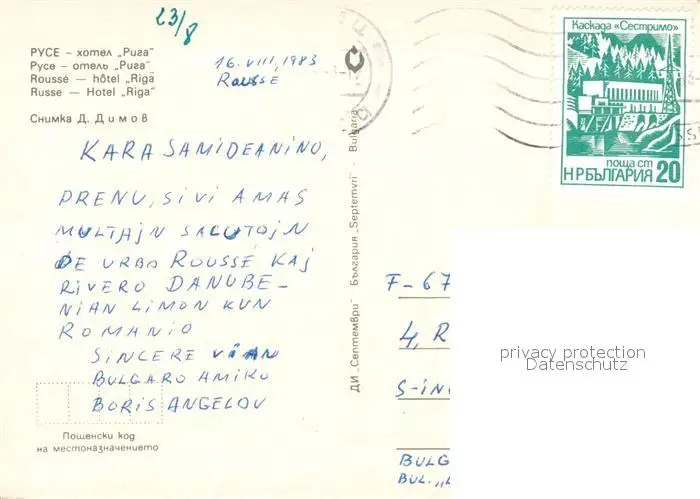 23/8
РУСЕ – хотел „Рига"
Русе – отель „Рига"
Roussé – hôtel „Riga"
Russe — Hotel „Riga"
Снимка Д. Димов
16.VIII,1983
ROUSSE
KARA SAMIDEANINO,
PRENU, SI VI AMAS
MULTAJN SALUTOJN
DE URBO ROUSSE KAJ
RIVERO DANUBE-
NIAN LIMON KUN
ROMANIO
SINCERE VIAN
BULGARO AMIKO
BORIS ANGELOV
Пощенски код
на местоназначението
ДИ „Септември" България „Septemvri" – Bulgaria
Каскада „Сестримо"
поща ст
НР БЪЛГАРИЯ 20
F-67
4, R
S-IN
BULG
BUL. „
privacy protection
Datenschutz